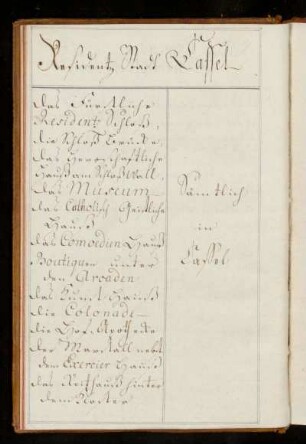 Residentz Stadt Cassel
das Fürstliche
Residentz Schloß,
die Schloß Brücke,
das Herrschaftliche
Hauß am Schloß Wall
das Museum
das Catholisch Geistliche
Hauß
das Comoedien Hauß
Boutiquen unter
den Arcaden
das Zunft Hauß
die Colonade
die Hof Apotheke
der Marstall nebst
dem Exercier Hauß
das Reithauß hinter
dem Kloster
Sämtlich
in
Cassel